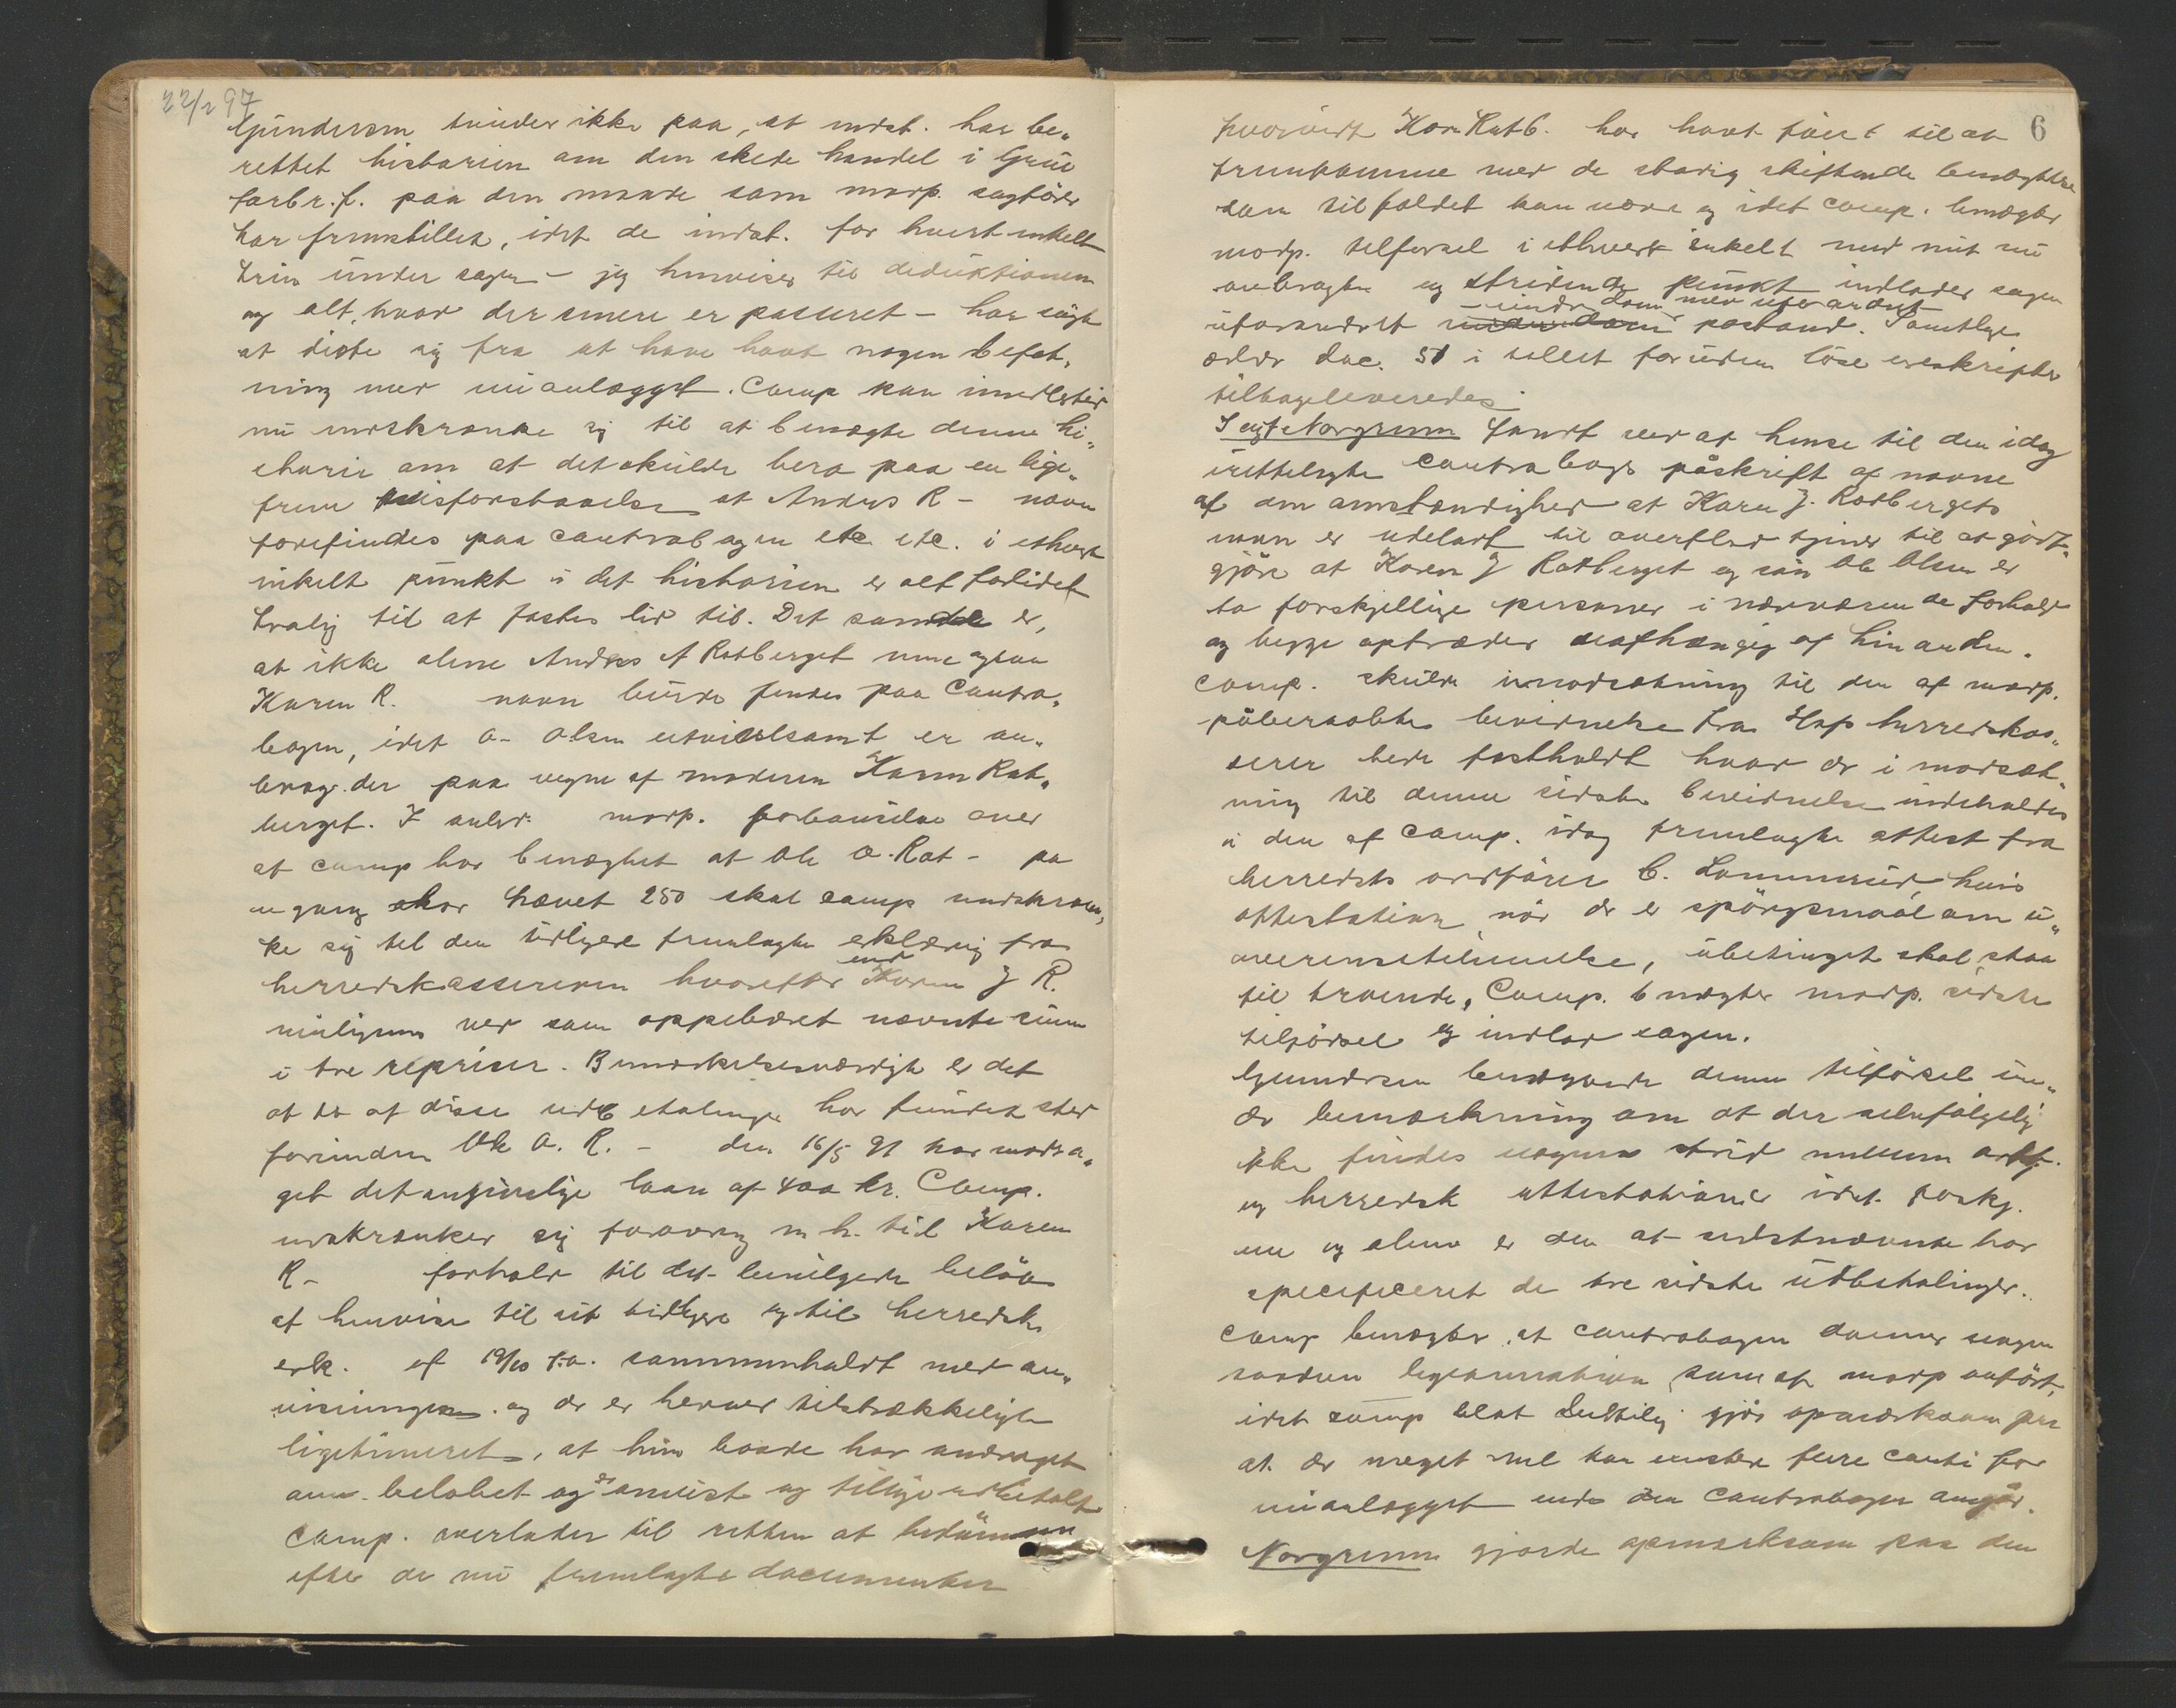 22/2 97
Gundersen tvinder ikke paa, at indst. har be„
rettet historien om den skede handel i Grue
forbr.f. paa den maade som modp. sagfører
har fremstillet, idet de indst. for hvert enkelt
trin under sagen – jeg henviser til deduktionen
og alt, hvad der senere er passeret – har søgt
at liste sig fra at have havt nogen befat„
ning med mianlægget. Comp kan imidlertid
nu indskrænke sig til at benægte denne hi„
storie om at det skulde bero paa en lige„
frem misforstaaelse at Andres R – navn
forefindes paa contrabogen etc etc. i ethvert
enkelt punkt i det historien er alt forlidet
trolig til at fæstes lid til. Det samme er,
at ikke alene Andres A Rotberget men ogsaa
Karen R. navn burde findes paa Contra„
bogen, idet O. Olsen utvivlsomt er an„
brag. der paa vegne af moderen Karen Rot„
berget. I anled. modp. forbauselse over
at comp har benægtet at Ole O. Rot – paa
en gang har hævet 250 skal comp indskræn„
ke sig til den tidligere fremlagte erklæring fra
herredskassereren hvorefter end Karen J R.
muligens ved som oppebæret nævnte sum
i tre repriser. Bemærkelsesværdigt er det
at to af disse udbetalinger har fundet sted
forinden Ole O. R. – den 16/5 91 har modta„
get det angivelige laan af 400 kr. Comp.
indskrænker sig forøvrig m. h. til Karen
R – forhold til det bevilgede beløb
at henvise til sit tidligere og til herredsk.
erk. af 19/10 f.a. sammenholdt med an„
visningen. og der er herved tilstrækkeligt
ligetimeret, at hun baade har andraget
om beløbet og er anvist og tillige udbetalt
Comp. overlader til retten at bedømme
efter de nu fremlagte documenter
6
hvorvidt Karen Rotb. har havt føie t til at
fremkomme med de stadig skiftende benægtelser
som tilfældet kan være og idet comp. benægter
modp. tilførsel i ethvert enkelt med mit nu
anbragte og stridende punkt indlader sagen
– under dom med uforandret
uforandret under dom paastand. Samtlige
ældre doc. 51 i tallet foruden løse ereskripter
tilbageleveredes.
Sagf. Norgrenn fandt ved at hense til den idag
irettelagte contrabogs påskrift af navne
af om omstændighed at Karen J. Rotbergets
navn er udeladt til overflod tjener til at godt„
gjøre at Karen J Rotberget og søn Ole Olsen er
to forskjellige personer i nærværende forhold
og begge optræder uafhængig af hinanden.
Comp. skulde i modsætning til den af modp.
påberaabte bevidnelse fra Hof herredskas„
serer bede fastholdt hvad der i modsæt„
ning til denne sidste bevidnelse indeholdes
i den af comp. idag fremlagte attest fra
herredets ordfører C. Lommerud, hvis
attestation når der er spørgsmaal om u„
overensstemmelse, ubetinget skal staa
til troende. Comp. benægter modp. sidste
tilførsel og indlod sagen.
Gundersen benægtede denne tilførsel un„
der bemærkning om at der selvfølgelig
ikke findes nogen strid mellem ordf.
og herredsk attestationer idet forskj.
ene og alene er den at sidstnævnte har
specificeret de tre sidste udbetalinger.
Comp benægter at contrabogen danner nogen
saadan legetimation som af modp anført,
idet comp blot Lultilig gjør opmærksom paa
at der meget vel kan existere flere conti for
mianlægget end den Contrabogen angår.
Norgrenn gjorde opmærksom paa den